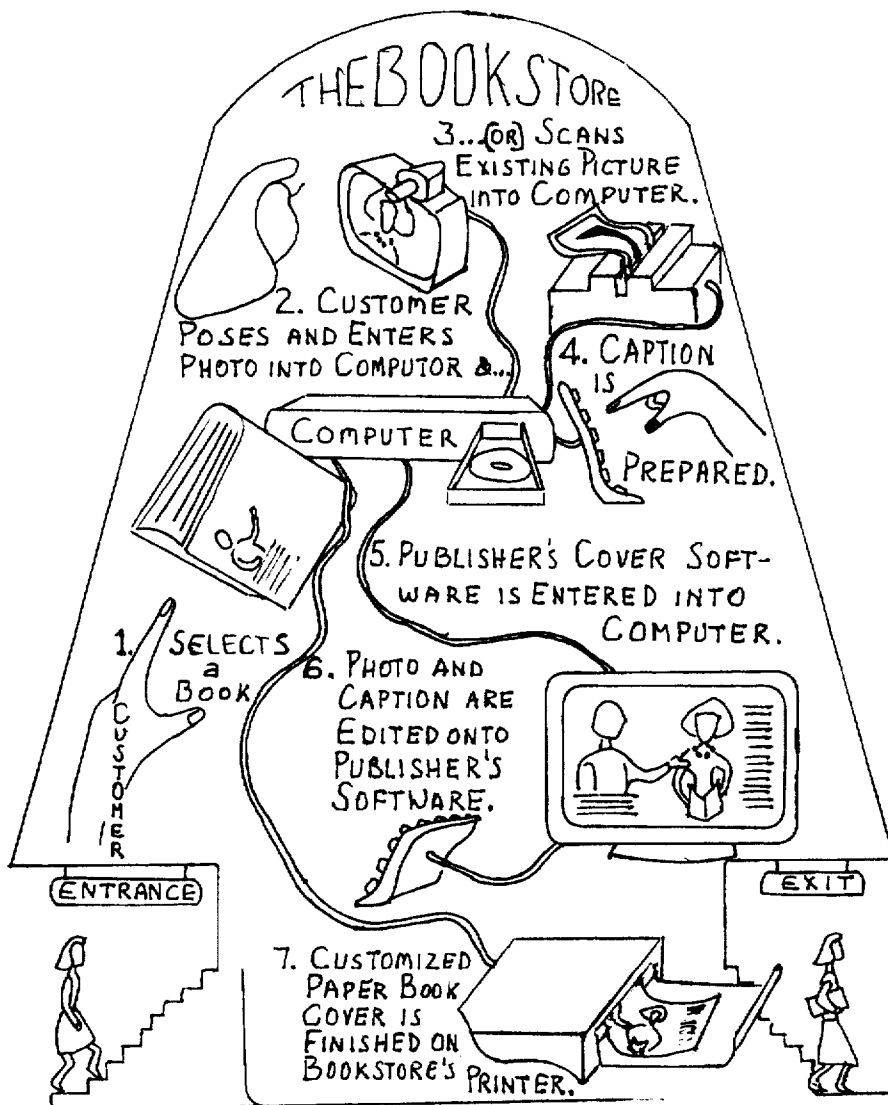 THE BOOKSTORE
3...(OR) SCANS
EXISTING PICTURE
INTO COMPUTER.
2. CUSTOMER
POSES AND ENTERS
PHOTO INTO COMPUTOR &...
4. CAPTION
IS
PREPARED.
COMPUTER
5. PUBLISHER'S COVER SOFT-
WARE IS ENTERED INTO
COMPUTER.
1. SELECTS
a
BOOK
CUSTOMER
6. PHOTO AND
CAPTION ARE
EDITED ONTO
PUBLISHER'S
SOFTWARE.
ENTRANCE
EXIT
7. CUSTOMIZED
PAPER BOOK
COVER IS
FINISHED ON
BOOKSTORE'S PRINTER.